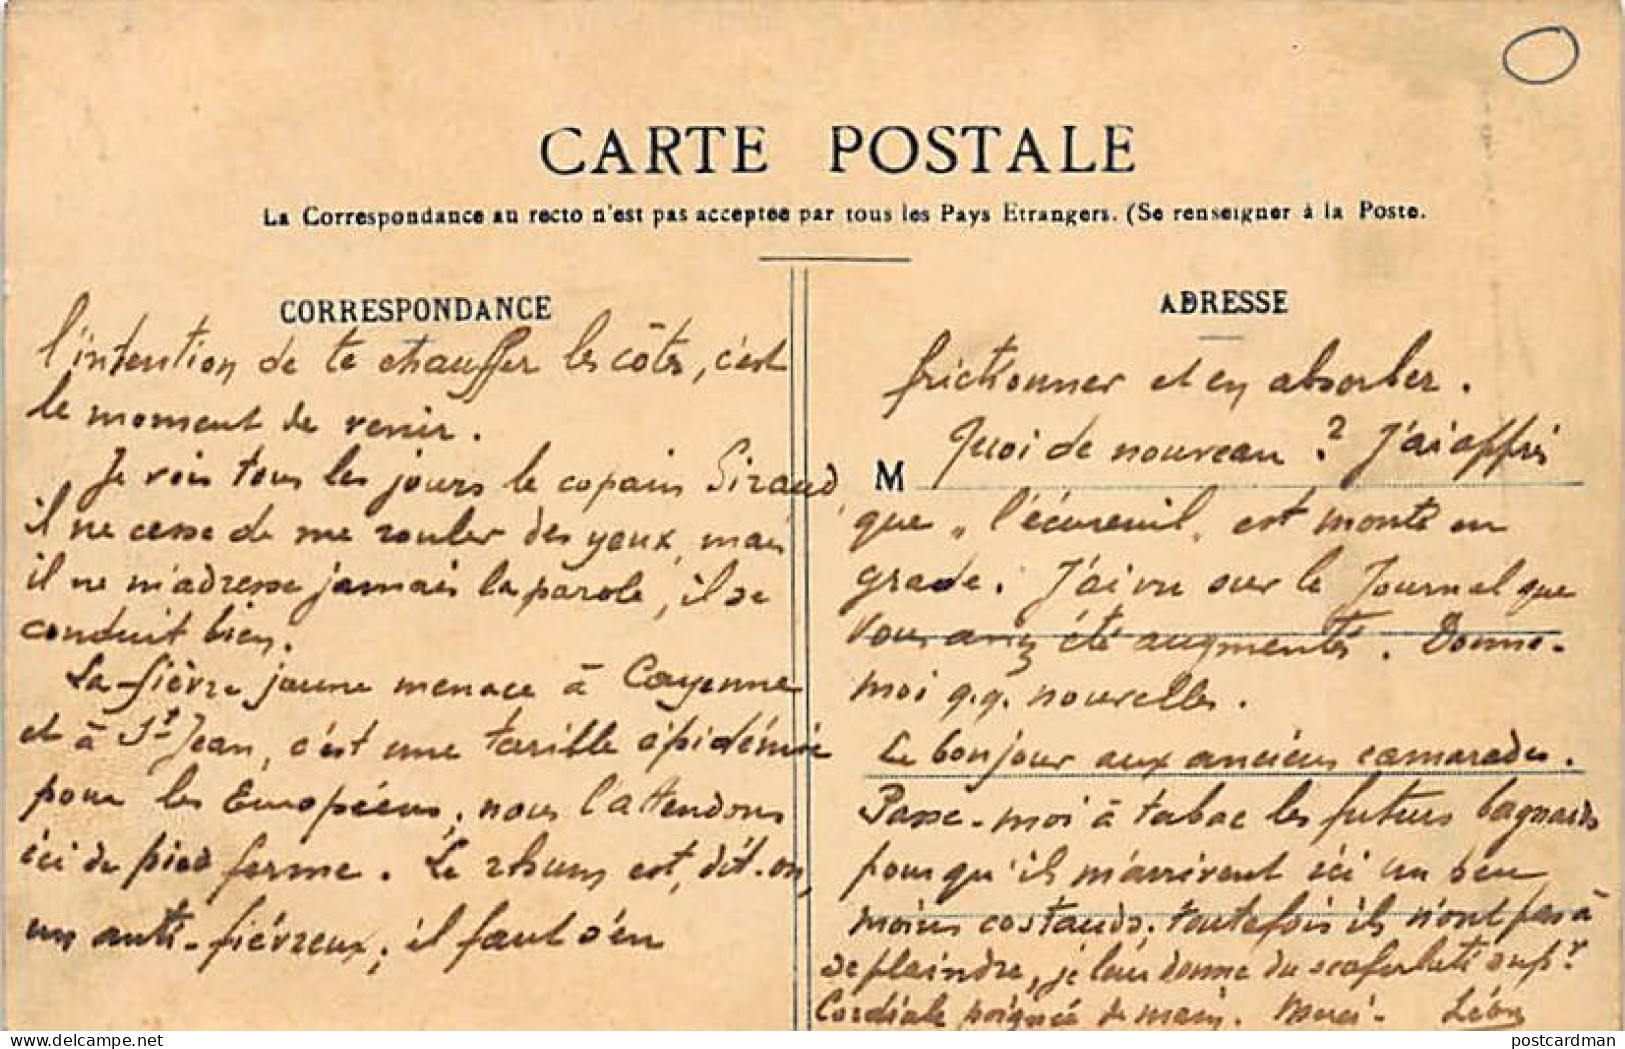 CARTE POSTALE
La Correspondance au recto n'est pas acceptée par tous les Pays Etrangers. (Se renseigner à la Poste.
CORRESPONDANCE
l'intention de te chauffer les côtes, c'est
le moment de venir.
Je vois tous les jours le copain Siraud,
il ne cesse de me rouler des yeux, mais
il ne m'adresse jamais la parole, il se
conduit bien.
La fièvre jaune menace à Cayenne
et à St Jean, c'est une terrible épidémie
pour les Européens, nous l'attendons
ici de pied ferme. Le rhum est, dit-on,
un anti-fiévreux; il faut s'en
ADRESSE
frictionner et en absorber.
Quoi de nouveau? J'ai appris
M
que "l'écureuil" est monté en
grade. J'ai vu sur le Journal que
vous aviez été augmentés. Donne-
moi q.q. nouvelles.
Le bonjour aux anciens camarades.
Passe-moi à tabac les futurs bagnards
pour qu'ils m'arrivent ici un peu
moins costauds, toutefois ils n'ont pas à
se plaindre, je leur donne du scaferlati supr
Cordiale poignée de main. Merci. Léon
postcardman